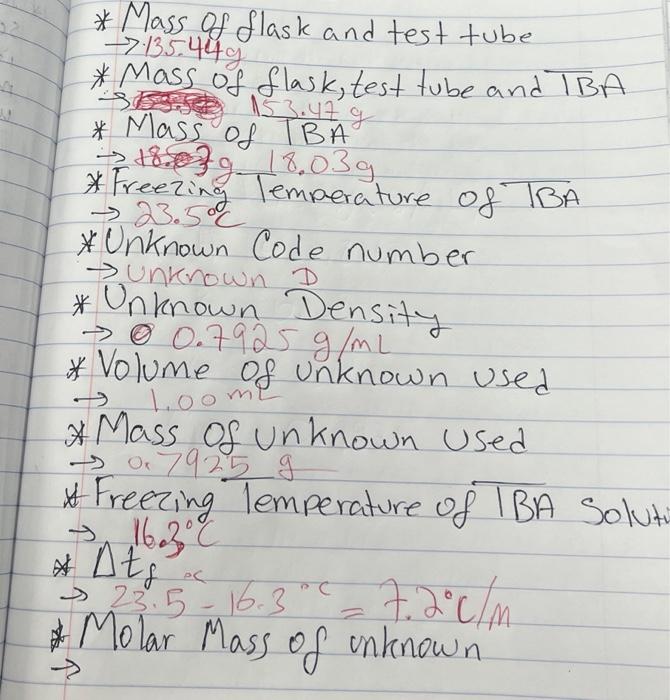 * Mass of flask and test tube
→ 135.44g
* Mass of flask, test tube and TBA
→ 153.47 g
* Mass of TBA
→ g 18.03g
* Freezing Temperature of TBA
→ 23.5°C
* Unknown Code number
→ Unknown D
* Unknown Density
→ 0.7925 g/mL
* Volume of unknown used
→ 1.00 mL
* Mass of unknown used
→ 0.7925 g
* Freezing Temperature of TBA Soluti
→ 16.3°C
* Δtf
→ 23.5 °C - 16.3 °C = 7.2°C/m
* Molar Mass of unknown
→